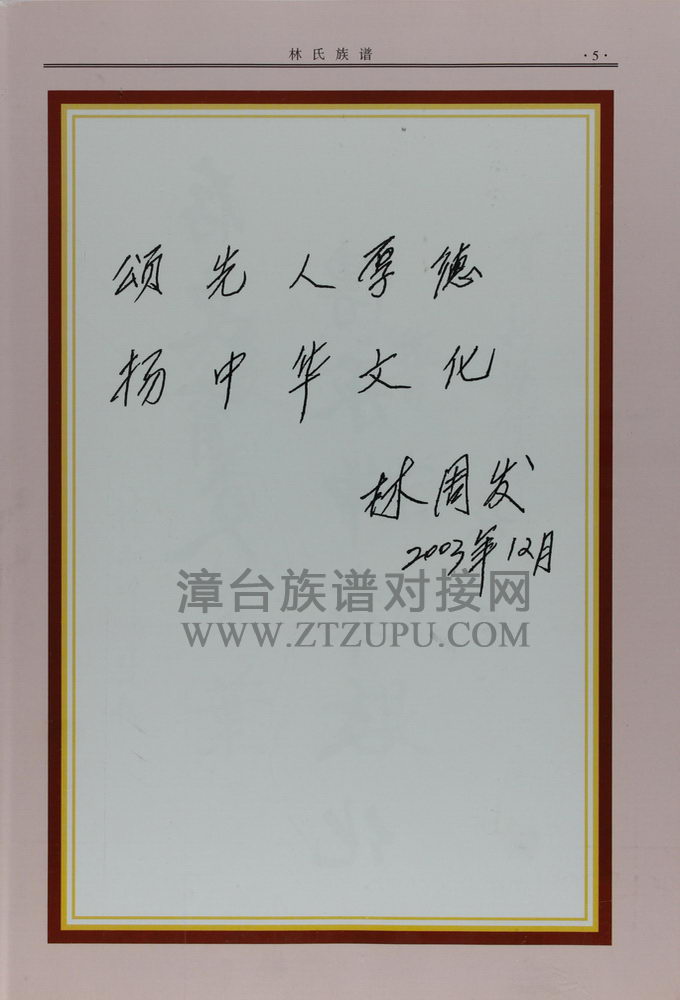 林氏族谱 ·5·
颂先人厚德
扬中华文化
林周发
2003年12月
漳台族谱对接网
WWW.ZTZUPU.COM